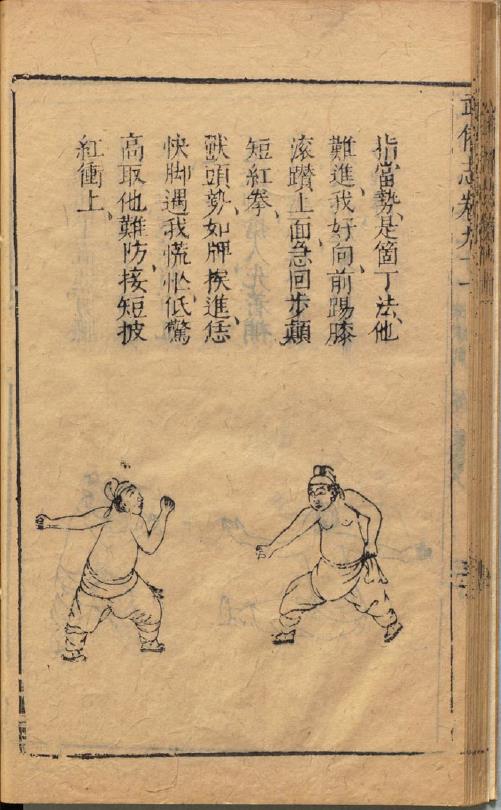 武備志卷九十一
指當勢是箇丁法、他
難進我好向前踢膝
滚躦上面、急回步顛
短紅拳、
獸頭勢如牌挨進恁
快脚遇我慌忙、低驚
高取他難防、接短披
紅衝上、